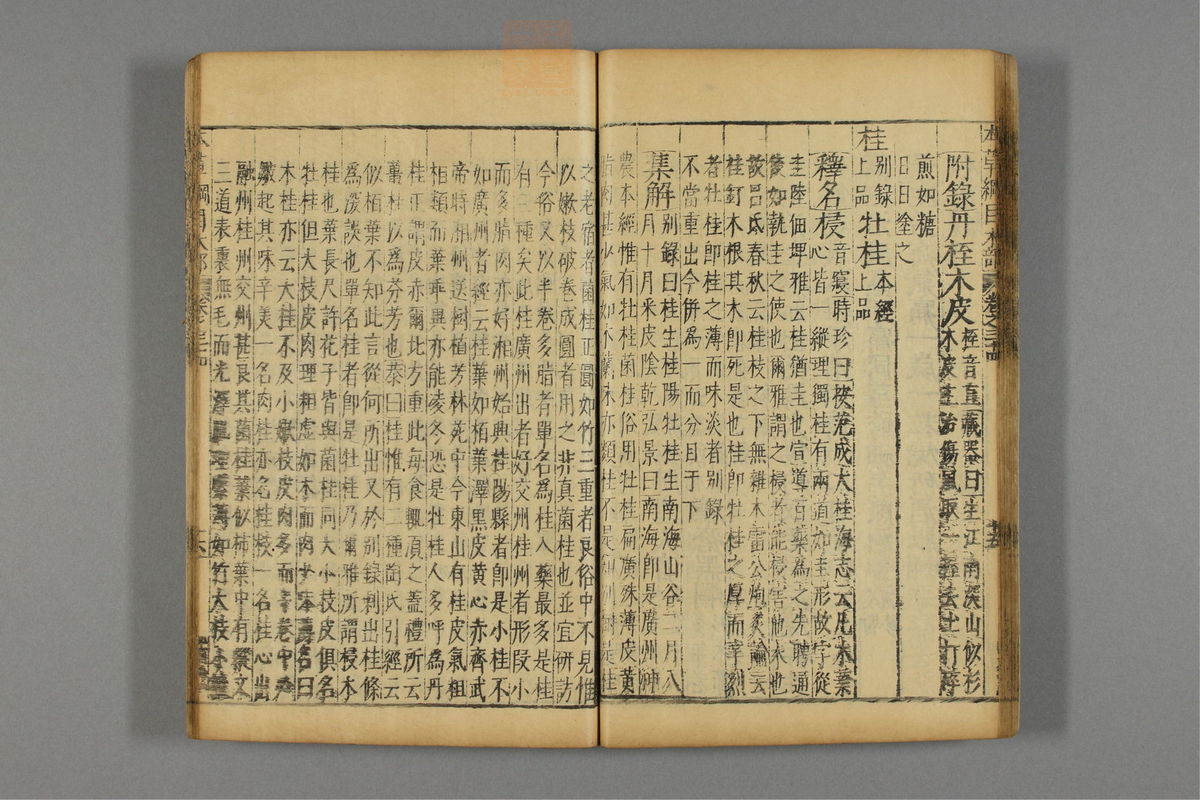 本草綱目木部 卷之三十四
附錄丹桎木皮桎音直藏器曰生江南深山似杉
木皮主治癘瘍風取一握去土打碎
煎如糖
旧日塗之
桂別錄上品牡桂本經上品
釋名梫音寢時珍曰按范成大桂海志云凡木葉
心皆一縱理獨桂有兩道如圭形故字從
圭陸佃埤雅云桂猶圭也宣導百藥為之先聘通
使如執圭之使也爾雅謂之梫者能梫害他木也
故呂氏春秋云桂枝之下無雜木雷公炮炙論云
桂釘木根其木即死是也桂即牡桂之厚而辛烈
者牡桂即桂之薄而味淡者別錄
不當重出今併為一而分目于下
集解別錄曰桂生桂陽牡桂生南海山谷二月八
月十月采皮陰乾弘景曰南海即是廣州神
農本經惟有牡桂菌桂俗用牡桂扁廣殊薄皮黃
脂肉甚少氣如木蘭味亦類桂不是別樹是桂
之老宿者菌桂正圓如竹三重者良俗中不見惟
以嫩枝破卷成圓者用之非真菌桂也並宜研訪
今俗又以半卷多脂者單名為桂入藥最多是桂
有三種矣此桂廣州出者好交州桂州者形段小
而多脂肉亦好湘州始興桂陽縣者即是小桂不
如廣州者經云桂葉如柏葉澤黑皮黃心赤齊武
帝時湘州送樹植芳林苑中今東山有桂皮氣粗
相類而葉乖異亦能凌冬恐是牡桂人多呼為丹
桂正謂皮赤爾北方重此每食輒須之蓋禮所云
薑桂以為芬芳也恭曰桂惟有二種陶氏引經云
似栢葉不知此言從何所出又於別録剩出桂條
為深誤也單名桂者即是牡桂乃爾雅所謂梫木
桂也葉長尺許花子皆與菌桂同大小枝皮俱名
牡桂但大枝皮肉理粗虛如木而肉少味薄名曰
木桂亦云大桂不及小嫩枝皮肉多而半卷中必
皺起其味辛美一名肉桂亦名桂枝一名桂心出
融州桂州交州甚良其菌桂葉似柿葉中有縱文
三道表裏無毛而光澤肌理緊薄如竹大枝小枝